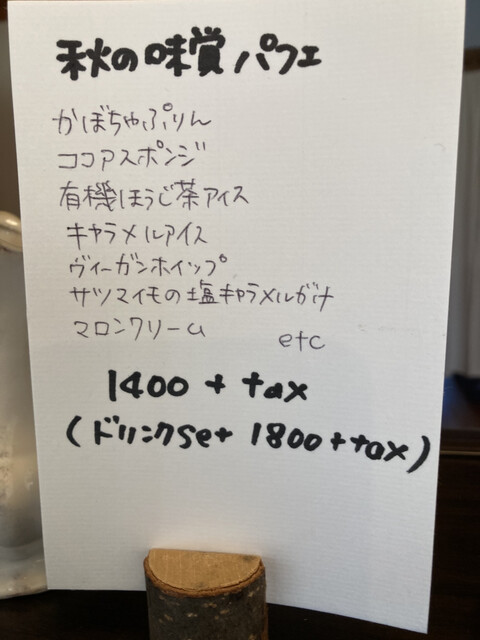 秋の味賞パフェ
かぼちゃぷりん
ココアスポンジ
有機ほうじ茶アイス
キャラメルアイス
ヴィーガンホイップ
サツマイモの塩キャラメルがけ
マロンクリーム
etc
1400 + tax
(ドリンクset 1800+tax)